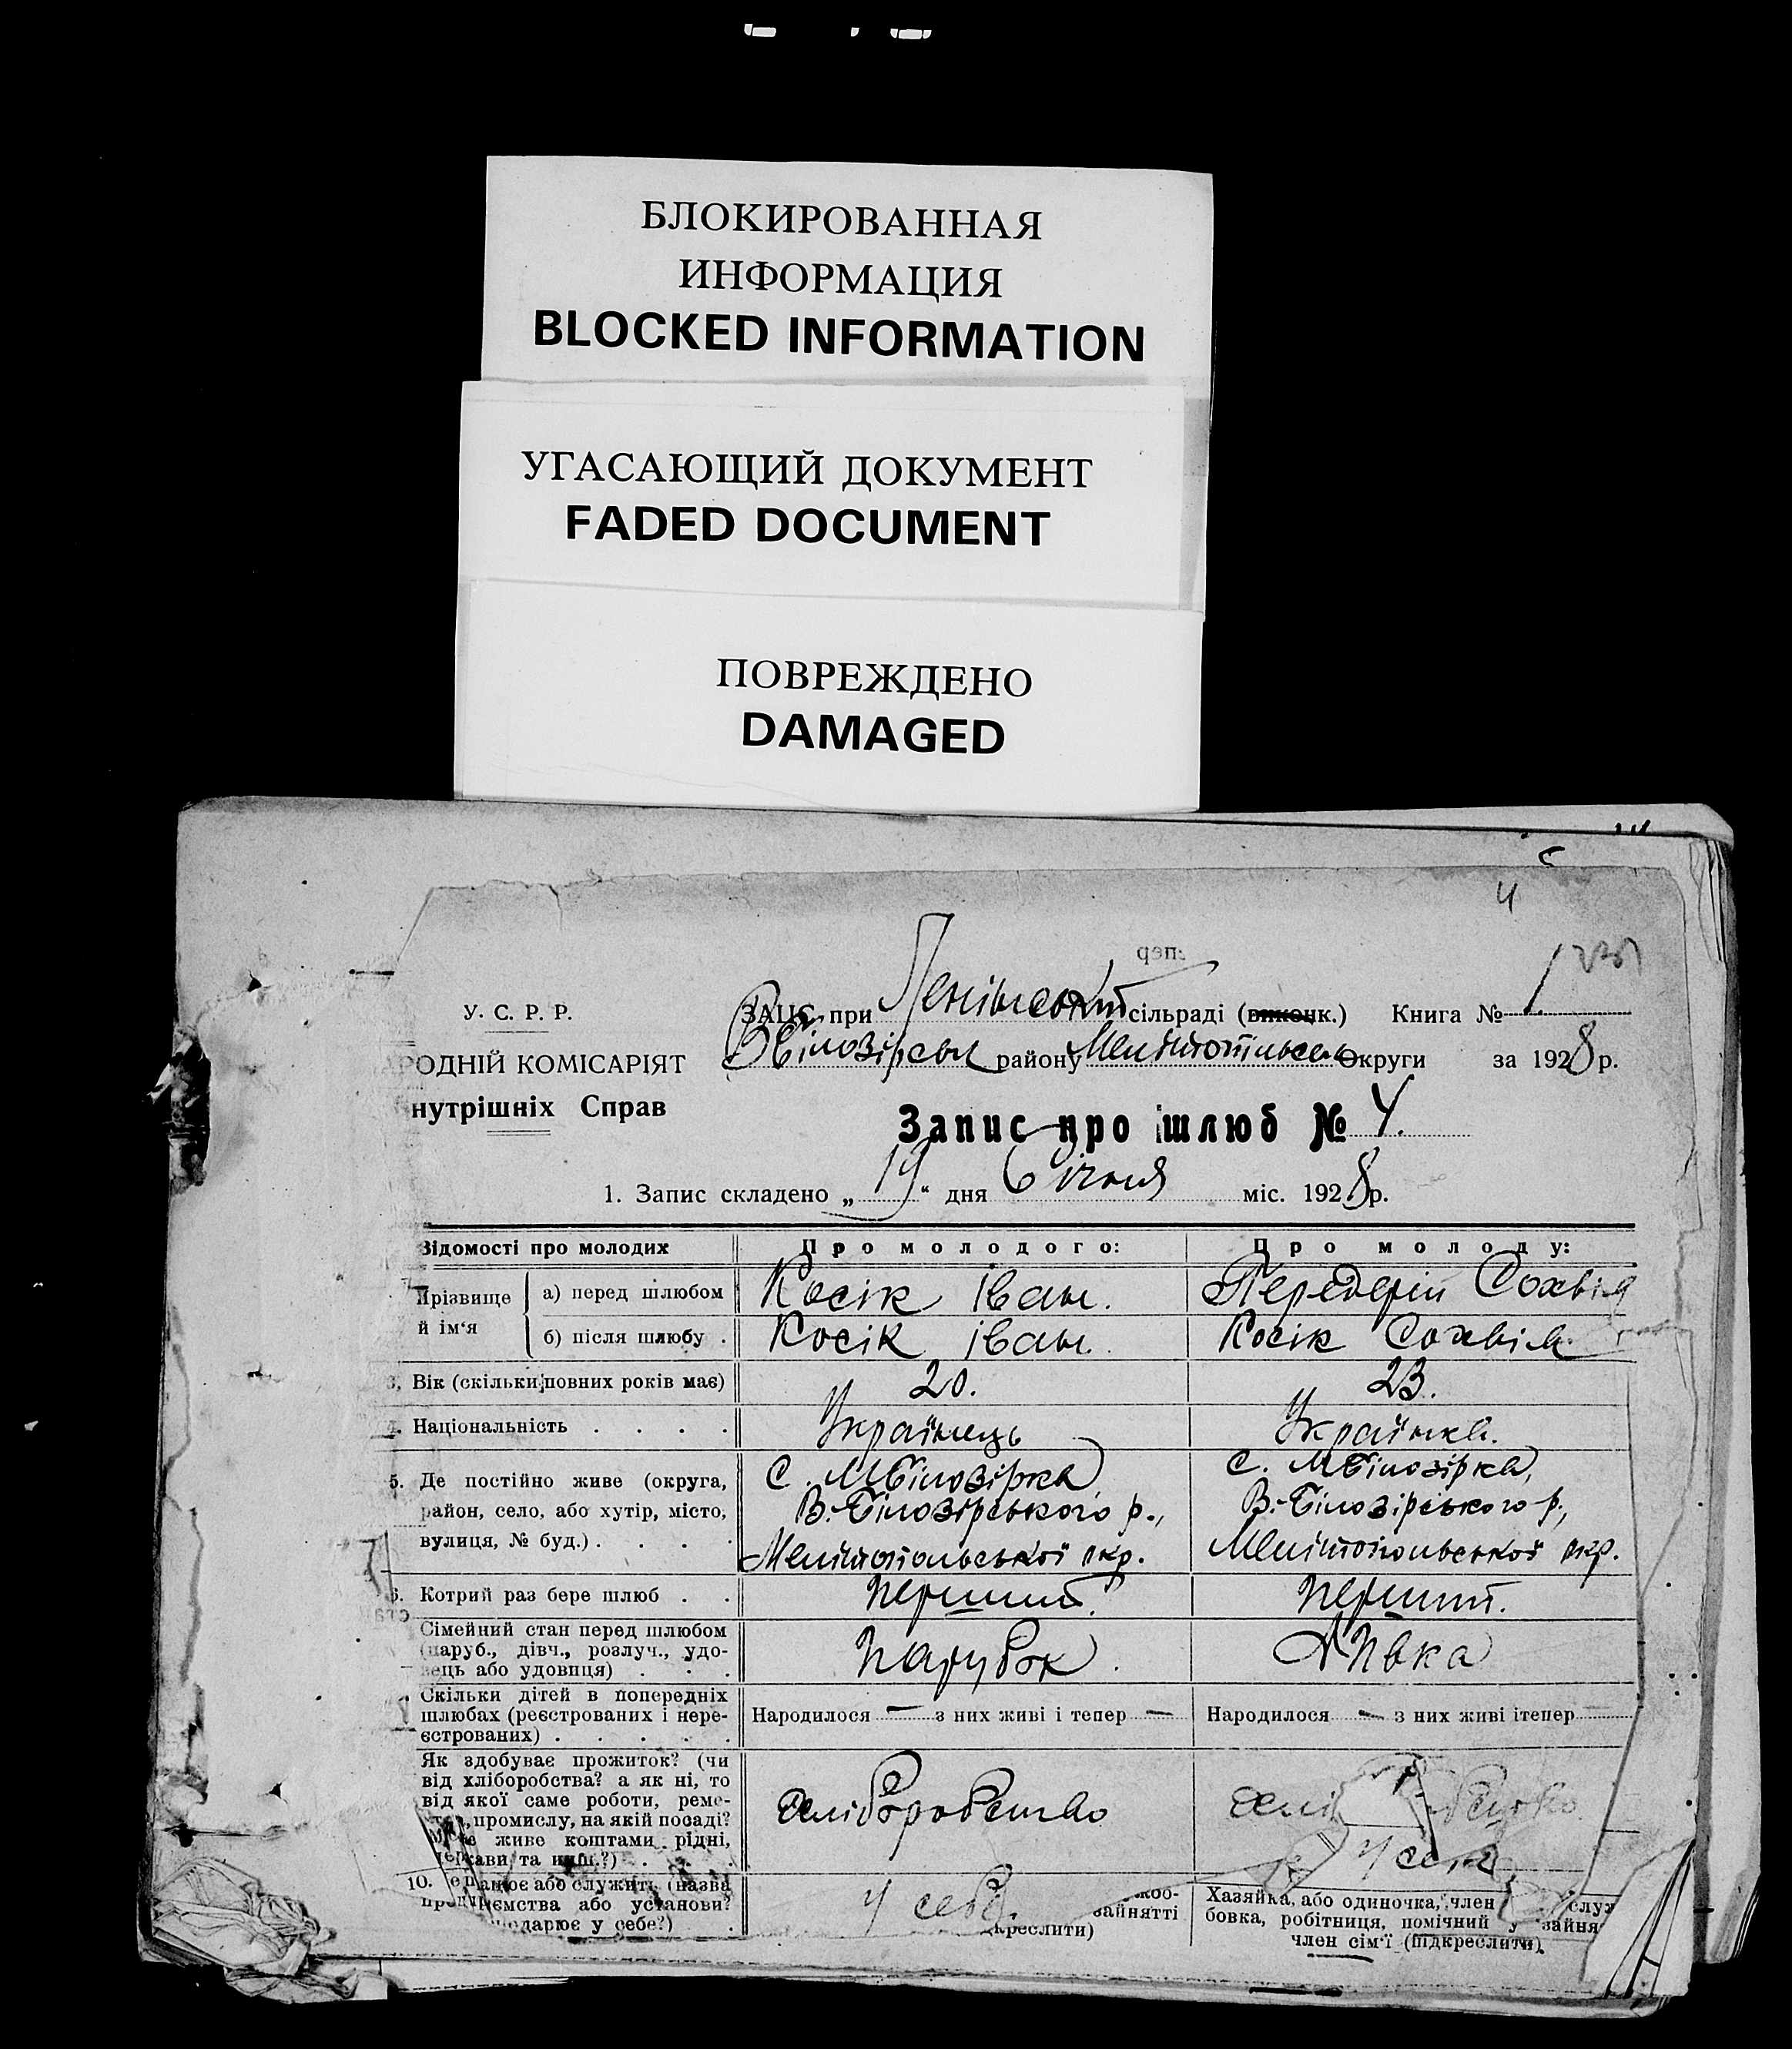 БЛОКИРОВАННАЯ
ИНФОРМАЦИЯ
BLOCKED INFORMATION
УГАСАЮЩИЙ ДОКУМЕНТ
FADED DOCUMENT
ПОВРЕЖДЕНО
DAMAGED
4
У. С. Р. Р.
ЗАЦС при сільраді (виконк.) Книга № 1.
РОДНІЙ КОМІСАРІЯТ
району Округи за 1928 р.
нутрішніх Справ
Запис про шлюб № 4.
1. Запис складено „19“ дня Січня міс. 1928 р.
Відомості про молодих
Про молодого:
Про молоду:
Прізвище й ім'я
а) перед шлюбом
Косік Іван.
Передерій Сохвія
б) після шлюбу .
Косік Іван.
Косік Сохвія
3. Вік (скільки повних років має)
20.
23.
4. Національність . . . .
Українець
Українка.
5. Де постійно живе (округа,
район, село, або хутір, місто,
вулиця, № буд.) . . . .
С. МБілозірка
В.-Білозірського р.,
Мелітопольської окр.
С. МБілозірка,
В.-Білозірського р.,
Мелітопольської окр.
6. Котрий раз бере шлюб . .
перший.
перший.
Сімейний стан перед шлюбом
(паруб., дівч., розлуч., удо-
вець або удовиця) . . .
парубок.
дівка
Скільки дітей в попередніх
шлюбах (реєстрованих і нере-
єстрованих) . . . . .
Народилося — з них живі і тепер —
Народилося — з них живі ітепер —
Як здобуває прожиток? (чи
від хліборобства? а як ні, то
від якої саме роботи, реме-
промислу, на якій посаді?
живе коштами рідні,
держави та инш.?) . . .
хліборобство
у себе
10.
або служить (назва
або установи?
у себе?) .
у себе.
коо-
зайнятті
креслити)
Хазяйка, або одиночка, член служ
бовка, робітниця, помічний у зайня
член сім'ї (підкреслити)